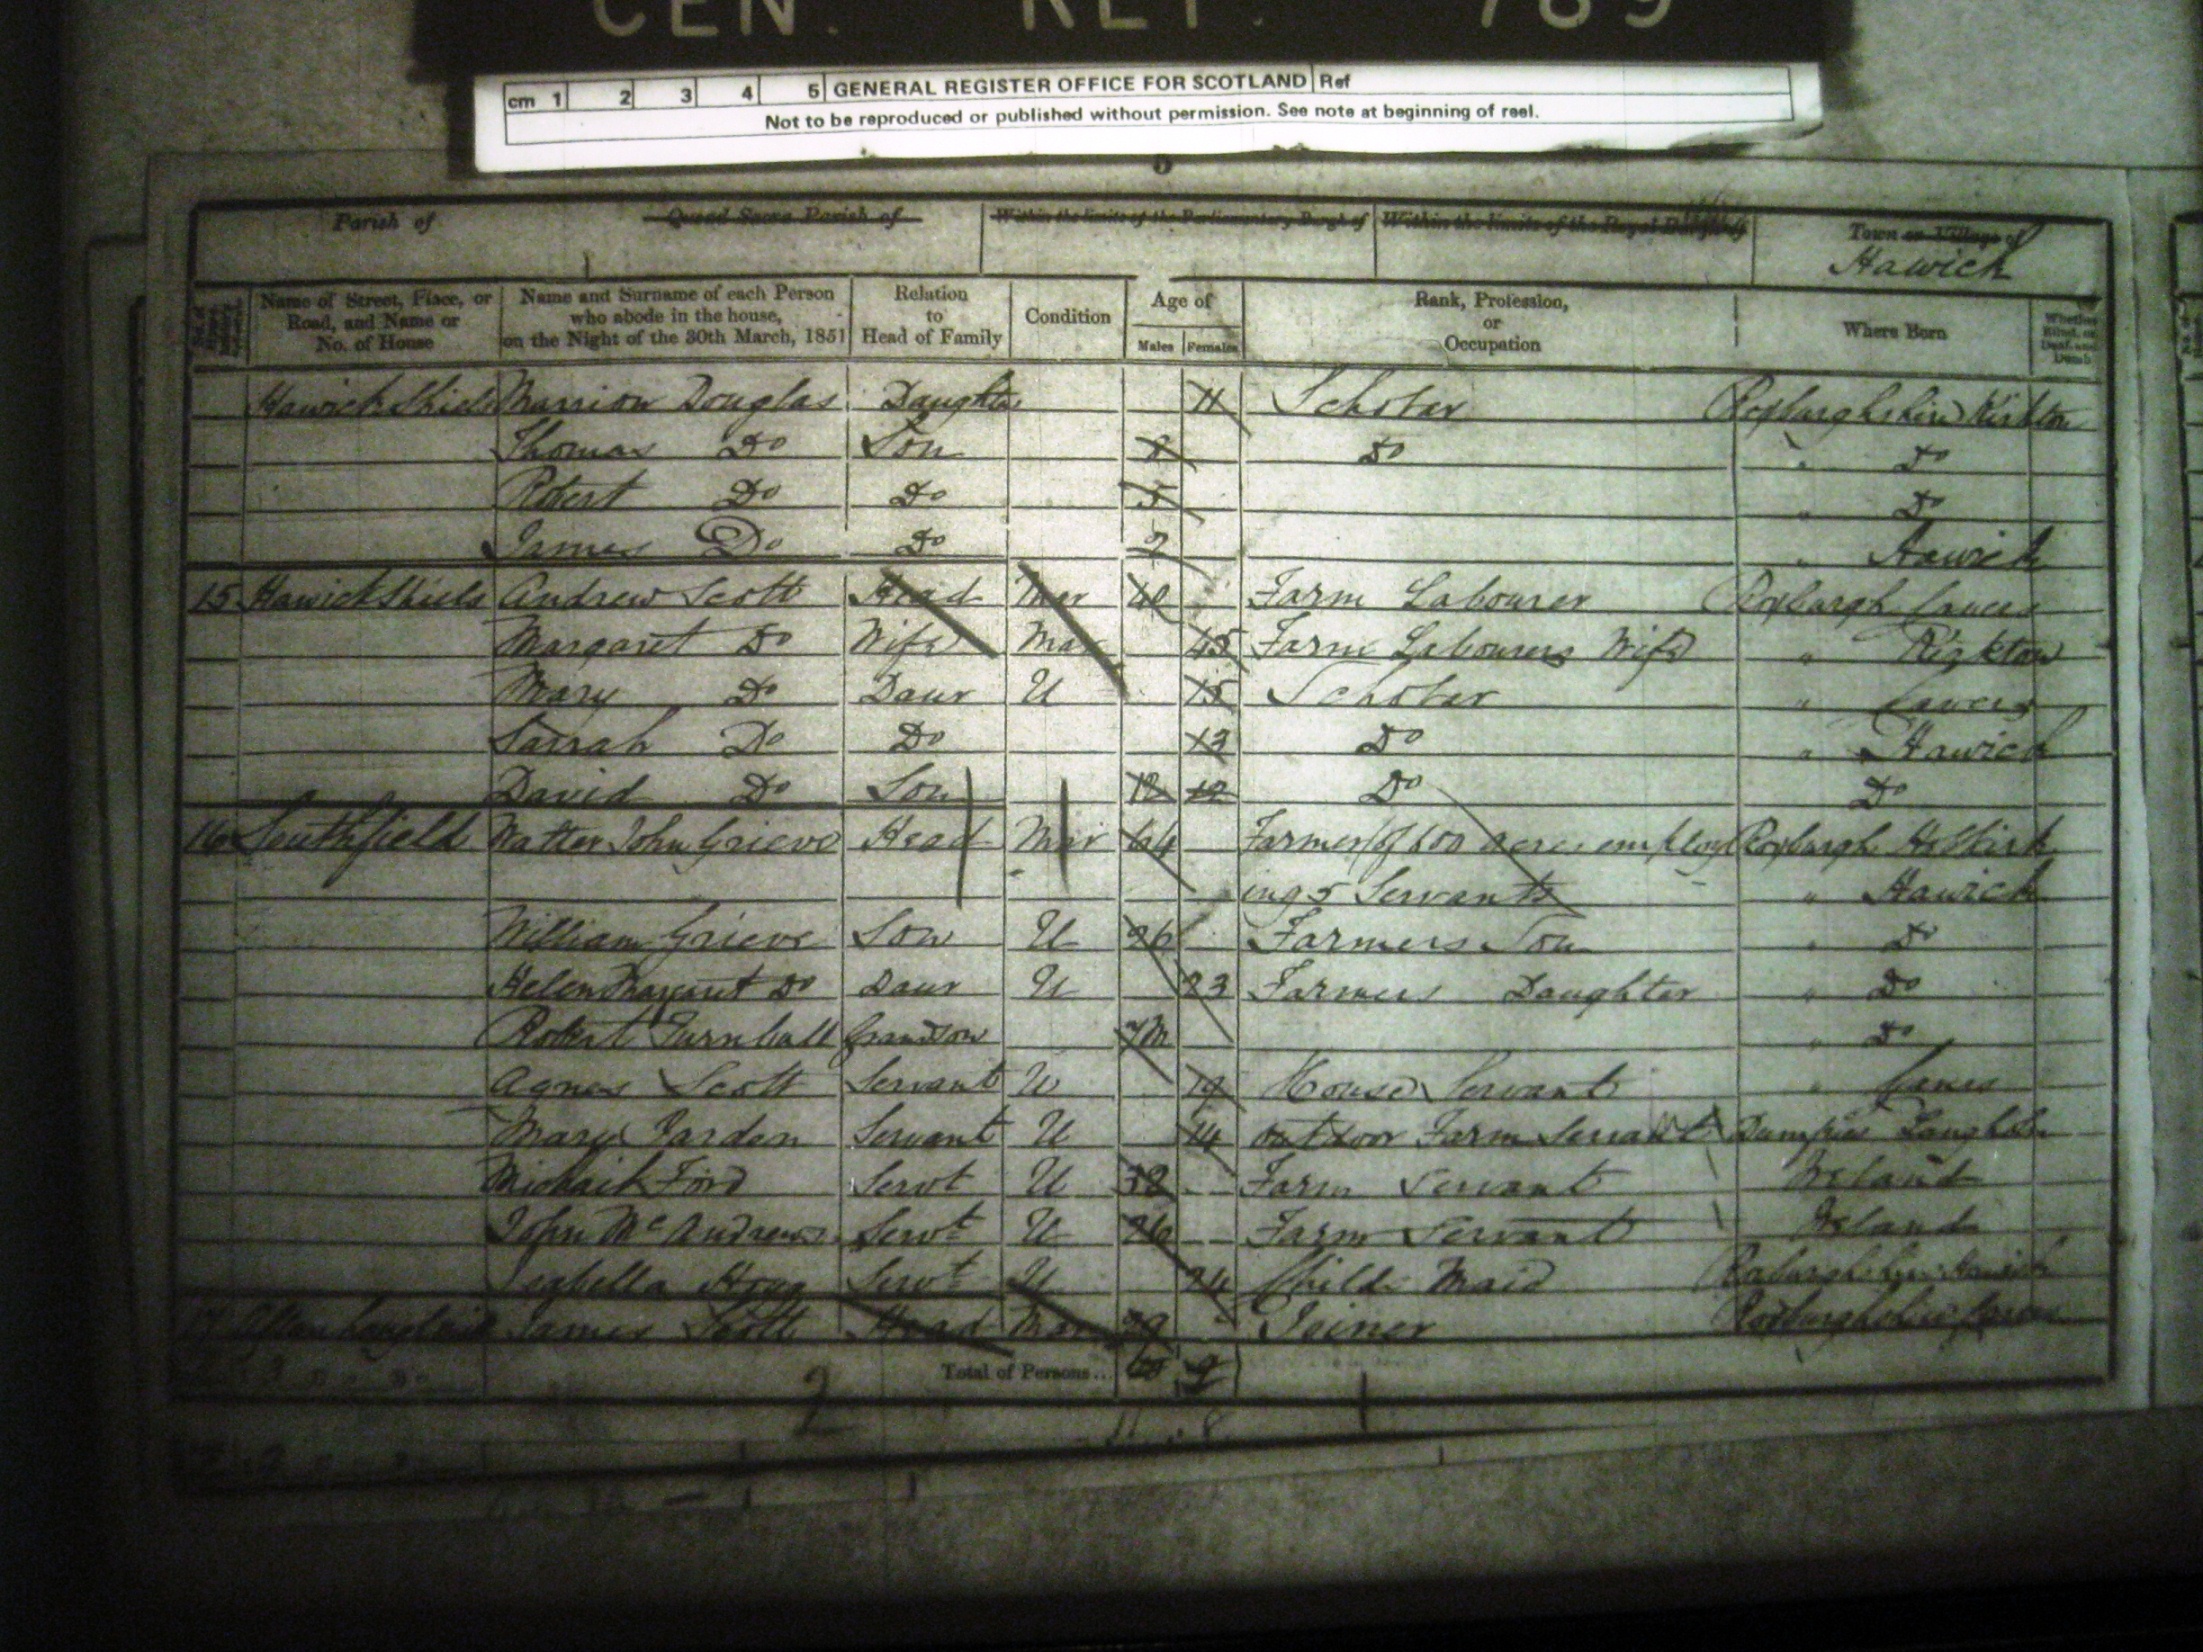 CEN. REF. 789
cm 1 2 3 4 5 GENERAL REGISTER OFFICE FOR SCOTLAND Ref
Not to be reproduced or published without permission. See note at beginning of reel.
Parish of Quoad Sacra Parish of Within the limits of the Parliamentary Burgh of Within the limits of the Royal Burgh of Town or Village of
Hawick
Name of Street, Place, or Road, and Name or No. of House
Name and Surname of each Person who abode in the house, on the Night of the 30th March, 1851
Relation to Head of Family
Condition
Age of
Males Females
Rank, Profession, or Occupation
Where Born
Whether Blind, or Deaf and Dumb
Hawick Shiels Marrion Douglas Daughter 11 Scholar Roxburghshire Kirkton
Thomas Do Son 8 Do " Do
Robert Do Do 5 " Do
James Do Do 2 " Hawick
15 Hawick Shiels Andrew Scott Head Mar Farm Labourer Roxburgh Cavers
Margaret Do Wife Mar 45 Farm Labourers Wife " Kirkton
Mary Do Daur U 15 Scholar " Cavers
Sarrah Do Do 13 Do " Hawick
David Do Son 12 12 Do Do
16 Southfield Walter John Grieve Head Mar 64 Farmer of 600 acres employ Roxburgh
ing 5 Servants " Hawick
William Grieve Son U 26 Farmers Son " Do
Helen Margaret Do Daur U 23 Farmers Daughter " Do
Robert Turnbull Grandson 7M " Do
Agnes Scott Servant U 19 House Servant " Cavers
Mary Jardon Servant U 14 outdoor Farm Servant Dumfries
Michael Ford Servt U 32 Farm Servant Ireland
John McAndrew Servt U 26 Farm Servant Ireland
Isabella Servt U 24 Childs Maid Roxburghshire Hawick
17 James Scott Head Mar Joiner Roxburghshire Cavers
Total of Persons... 10 9
2 11 . 8